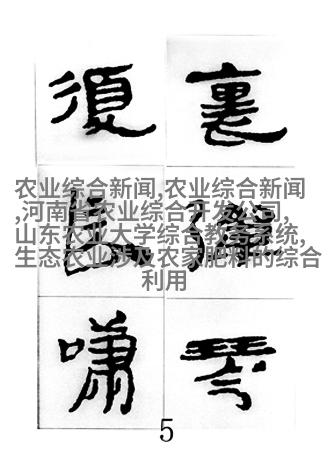 裏彈琴
復長嘯
农业综合新闻,农业综合新闻
,河南省农业综合开发公司,
山东农业大学综合教务系统,
生态农业涉及农家肥料的综合
利用
5